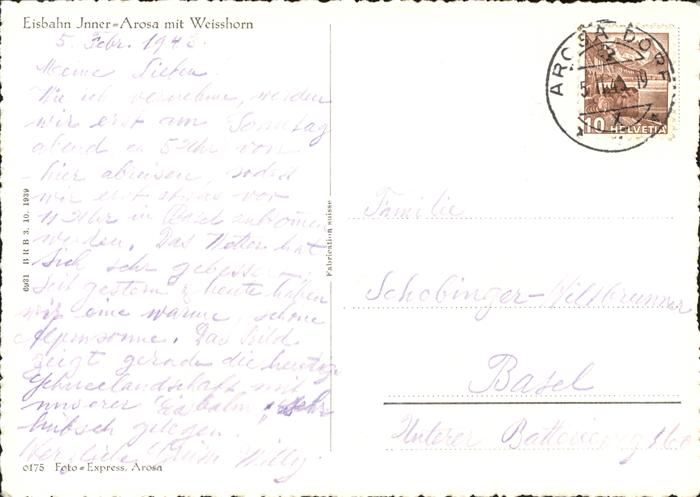 Eisbahn Jnner=Arosa mit Weisshorn
5. Febr. 194
Meine Lieben!
Wie ich vernehme, werden
wir erst am Sonntag
abend ca 5 Uhr von
hier abreisen, sodass
wir erst etwas vor
11 Uhr in Basel ankommen
werden. Das Wetter hat
sich sehr gebessert.
Seit gestern & heute haben
wir eine warme, schöne
Alpensonne. Das Bild
zeigt gerade die heutige
Schneelandschaft mit
unserer Eisbahn, sehr
hübsch gelegen.
Herzliche Grüsse Willy
0175 Foto=Express, Arosa
6931 B R B 3. 10. 1939
Fabrication suisse
AROSA DORF
10 HELVETIA
Familie
Schobinger-Villbrunner
Basel
Unterer Batterieweg 160